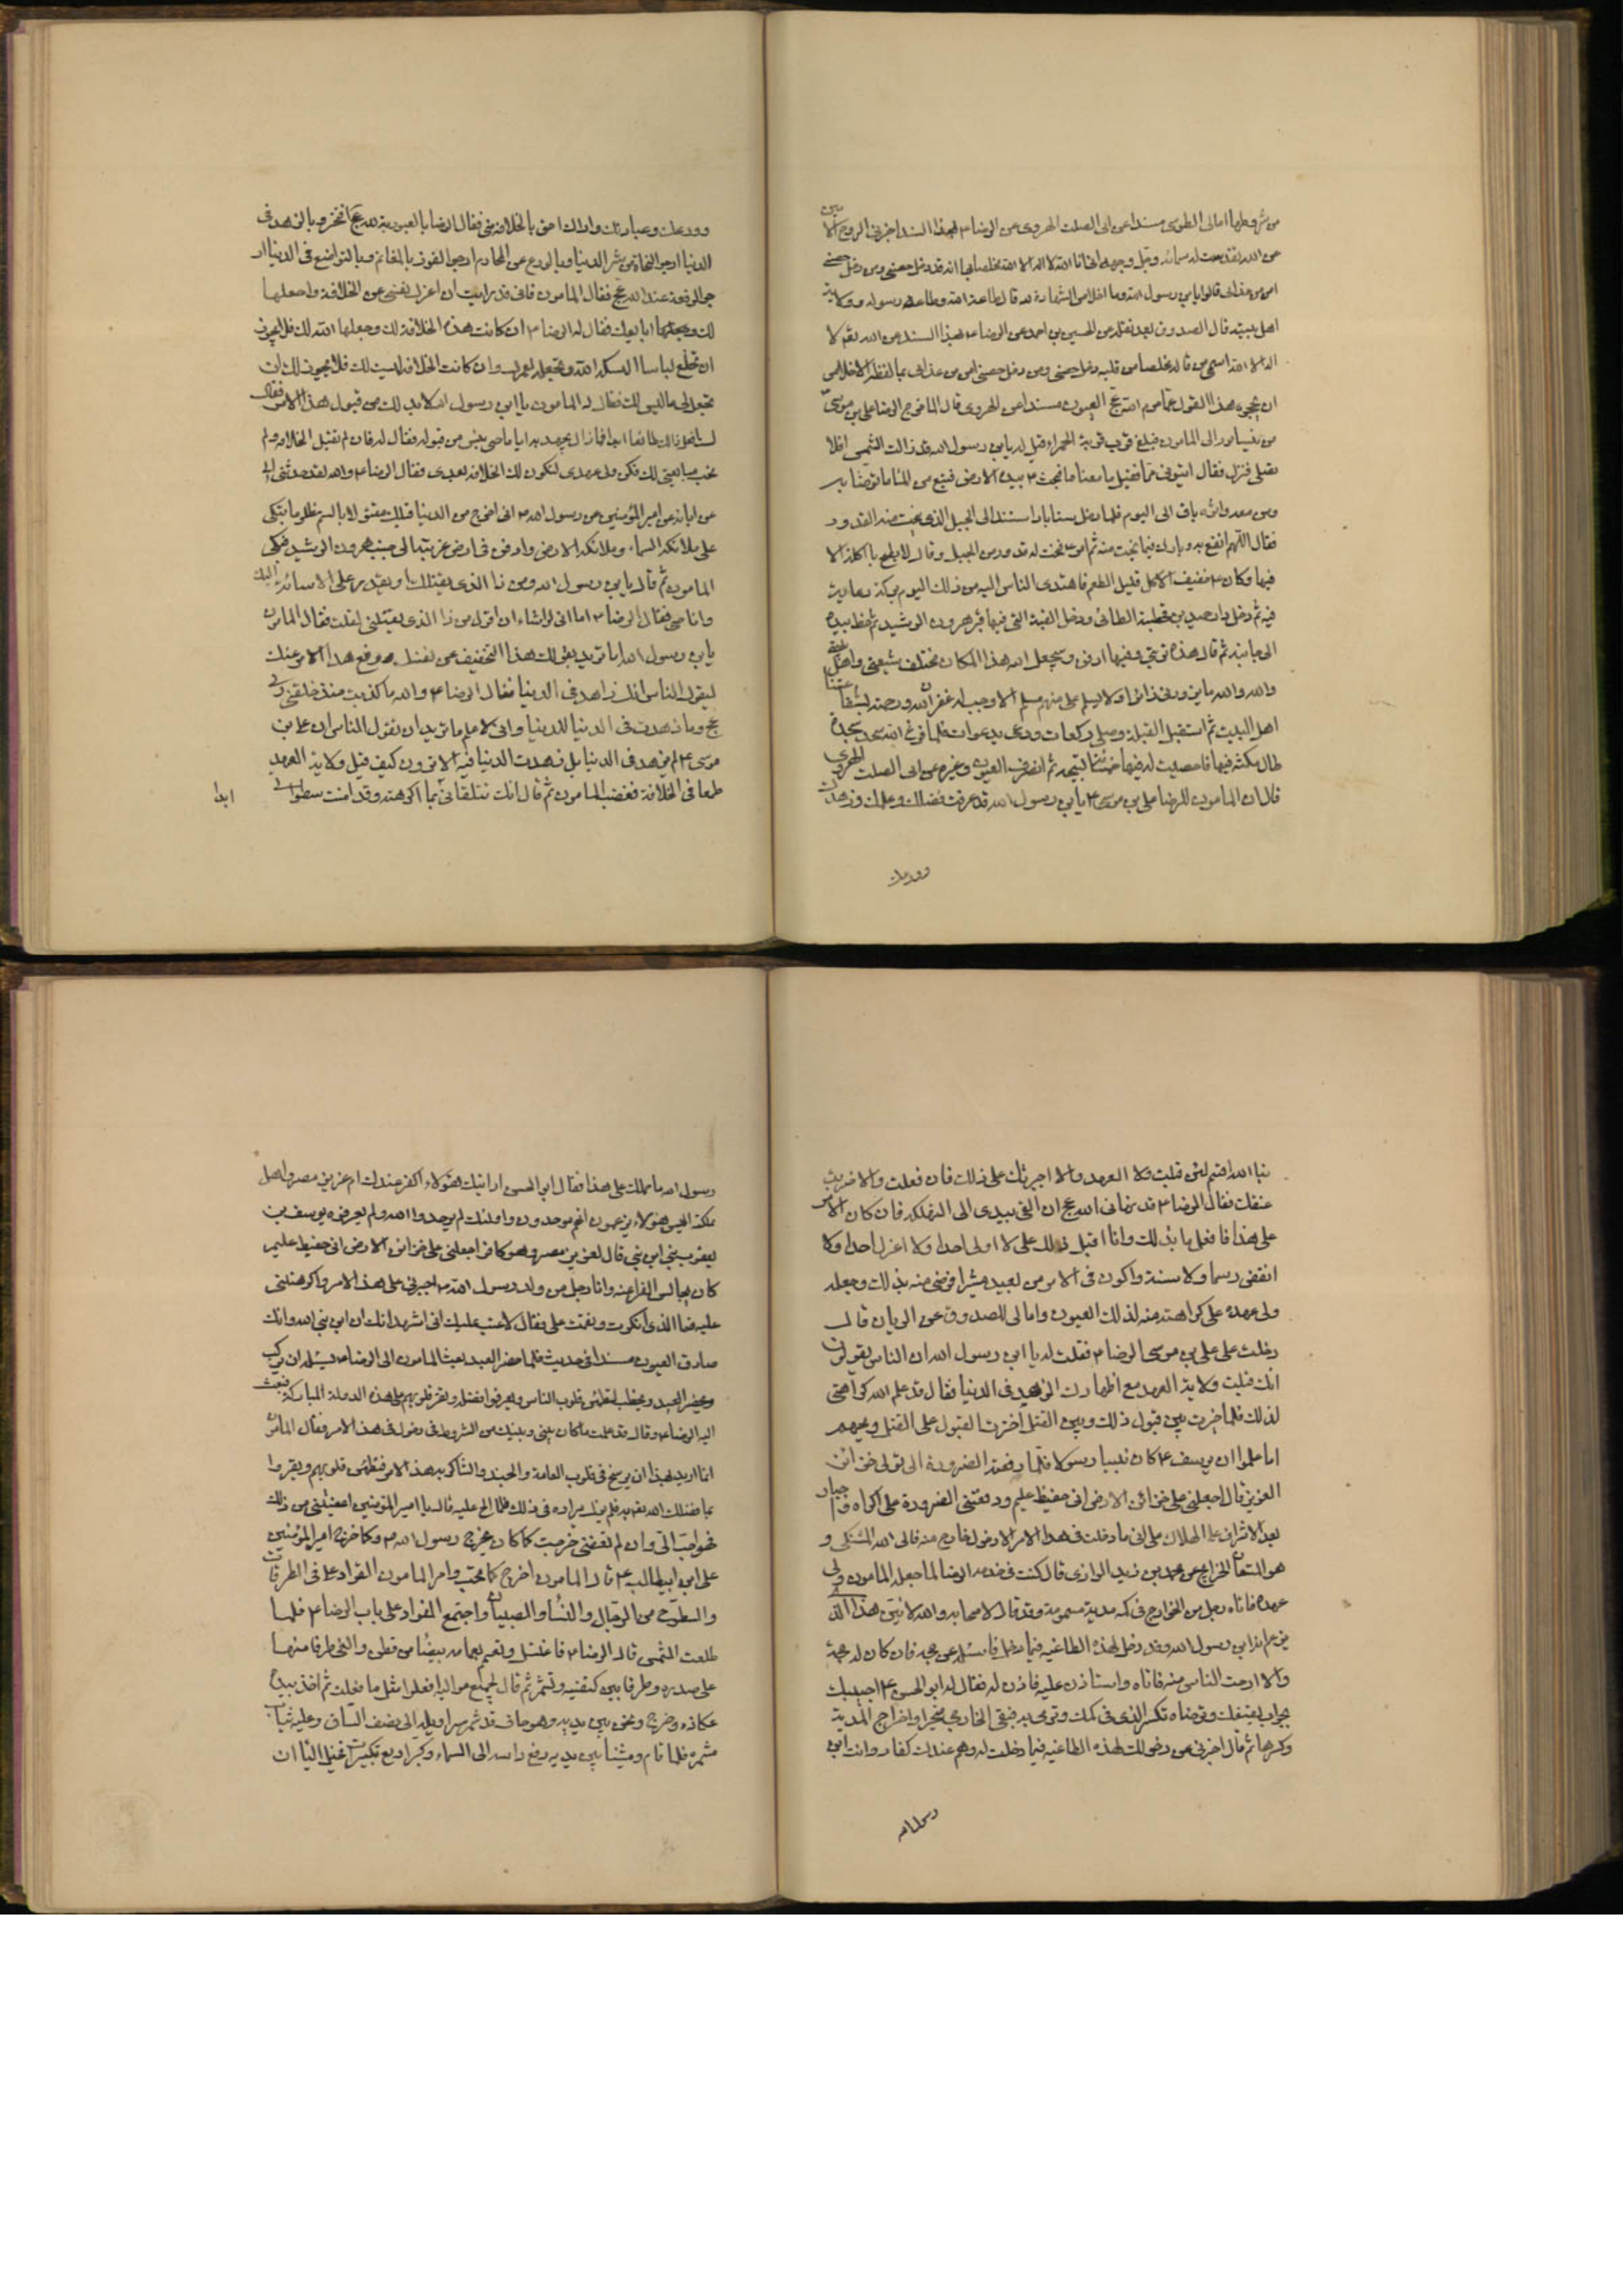 من شروطها امالى الطوسى مسندا عن ابى الصلت الهروى عن الرضا ع بهذا السند اخبرنى الروح الا
مين
عن الله تقدست اسمائه وجل وجهه انى انا الله لا اله الا الله مخلصا بها انه قد دخل حصنى ومن دخل حصنى
امن من عذابى قالوا يا بن رسول الله وما اخلاص الشهادة لله قال طاعة الله وطاعة رسوله وولاية
اهل بيته قال الصدوق بعد نقله عن الحسين بن احمد عن الرضا ع بهذا السند عن الله تعالى لا
اله الا الله اسمى من قاله مخلصا من قلبه دخل حصنى ومن دخل حصنى امن من عذابى
هذا القول العيون مسندا عن الهروى قال لما خرج الرضا على بن موسى
من نيسابور الى المامون فبلغ قرب قرية الحمراء قيل له يا بن رسول الله قد زالت الشمس افلا
تصلى فنزل فقال ايتونى بماء فقيل ما معنا ماء فبحث ع بيده الارض فنبع من الماء ما توضأ به
ومن معه واثره باق الى اليوم فلما دخل سناباد استند الى الجبل الذى ينحت منه القدور
فقال اللهم انفع به وبارك فيما ينحت منه ثم امر ع فنحت له قدور من الجبل وقال لا يطبخ ما اكله الا
فيها وكان ع خفيف الاكل قليل الطعم فاهتدى الناس اليه من ذلك اليوم بركة دعائه
فيه ثم دخل دار حميد بن قحطبة الطائى ودخل القبة التى فيها قبر هرون الرشيد ثم خط بيده
الى جانبه ثم قال هذه تربتى وفيها ادفن وسيجعل الله هذا المكان مختلف شيعتى واهل
والله والله ما يزورنى زائر ولا يسلم على منهم مسلم الا وجب له غفران الله ورحمته بشفاعتنا
اهل البيت ثم استقبل القبلة وصلى ركعات ودعى بدعوات فلما فرغ سجد سجدة
طال مكثه فيها فاحصيت له فيها خمسمائة تسبيحة ثم انصرف العيون وغيره عن ابى الصلت الهروى
قال ان المامون للرضا على بن موسى ع يا بن رسول الله قد عرفت فضلك وعلمك وزهدك
وورعك
وورعك وعبادتك واراك احق بالخلافة منى فقال الرضا بالعبودية لله عج افتخر وبالزهد فى
الدنيا ارجو النجاة من شر الدنيا وبالورع عن المحارم ارجو الفوز بالمغانم وبالتواضع فى الدنيا ار
جو الرفعة عند الله عج فقال المامون فانى قد رايت ان اعزل نفسى عن الخلافة واجعلها
لك وابايعك فقال له الرضا ع ان كانت هذه الخلافة لك وجعلها الله لك فلا يجوز
ان تخلع لباسا البسكه الله وتجعله لغيرك وان كانت الخلافة ليست لك فلا يجوز لك ان
تجعل لى ما ليس لك فقال له المامون يا بن رسول الله لا بد لك من قبول هذا الامر فقال
لست افعل ذلك طائعا ابدا فما زال يجهد به اياما حتى يئس من قبوله فقال له فان لم تقبل الخلافة ولم
تحب مبايعتى لك فكن ولى عهدى لتكون لك الخلافة بعدى فقال الرضا ع والله لقد حدثنى ابى
عن ابائه عن امير المؤمنين عن رسول الله ص انى اخرج من الدنيا قبلك مقتولا بالسم مظلوما تبكى
على ملائكة السماء وملائكة الارض وادفن فى ارض غربة الى جنب هرون الرشيد فبكى
المامون ثم قال يا بن رسول الله ومن ذا الذى يقتلك او يقدر على الاسائة اليك
وانا حى فقال الرضا ع اما انى لو اشاء ان اقول من ذا الذى يقتلنى لقلت فقال المامون
يا بن رسول الله انما تريد بقولك هذا التخفيف عن نفسك ودفع هذا الامر عنك
ليقول الناس انك زاهد فى الدنيا فقال الرضا ع والله ما كذبت منذ خلقنى ربى
عج وما زهدت فى الدنيا للدنيا وانى لاعلم ما تريد ان تقول الناس ان على بن
موسى ع لم يزهد فى الدنيا بل زهدت الدنيا فيه الا ترون كيف قبل ولاية العهد
طمعا فى الخلافة فغضب المامون ثم قال انك تتلقانى بما اكرهه وقد امنت سطوتى
ابدا
فبالله اقسم لئن قبلت ولاية العهد والا اجبرتك على ذلك فان فعلت والا ضربت
عنقك فقال الرضا ع قد نهانى الله عج ان القى بيدى الى التهلكة فان كان الامر
على هذا فافعل ما بدا لك وانا اقبل ذلك على لا اولى احدا ولا اعزل احدا ولا
انقض رسما ولا سنة واكون فى الامر من بعيد مشيرا فرضى منه بذلك وجعله
ولى عهده على كراهته منه لذلك العيون وامالى الصدوق عن الريان قال
دخلت على على بن موسى الرضا ع فقلت له يا ابن رسول الله ان الناس يقولون
انك قبلت ولاية العهد مع اظهارك الزهد فى الدنيا فقال قد علم الله كراهتى
لذلك فلما خيرت بين قبول ذلك وبين القتل اخترت القبول على القتل ويحهم
اما علموا ان يوسف ع كان نبيا رسولا فلما دفعته الضرورة الى تولى خزائن
العزيز قال اجعلنى على خزائن الارض انى حفيظ عليم ودفعتنى الضرورة على اكراه واجبار
بعد الاشراف على الهلاك على انى ما دخلت فى هذا الامر الا دخول خارج منه فالى الله المشتكى و
هو المستعان الخرايج عن محمد بن زيد الرازى قال كنت فى خدمة الرضا لما جعله المامون ولى
عهده فاتاه رجل من الخوارج فى كمه مدية مسمومة وقد قال لاصحابه والله لاتين هذا الذى
يزعم انه ابن رسول الله وقد دخل لهذه الطاغية فيما دخل فاسئله عن حجته فان كان له حجة
والا ارحت الناس منه فاتاه واستاذن عليه فاذن له فقال له ابو الحسن ع اجيبك
وكسرها ثم قال اخبرنى عن دخولك لهذه الطاغية فيما دخلت له وهم عندك كفار وانت ابن
رسول الله
رسول الله ما حملك على هذا فقال ابو الحسن ارايتك هؤلاء اكفر عندك ام عزيز مصر واهل
مملكته اليس هؤلاء يزعمون انهم موحدون واولئك لم يوحدوا الله ولم يعرفوه يوسف بن
يعقوب نبى ابن نبى قال لعزيز مصر وهو كافر اجعلنى على خزائن الارض انى حفيظ عليم
كان يجالس الفراعنة وانا رجل من ولد رسول الله ص اجبرنى على هذا الامر واكرهنى
عليه فما الذى انكرت ونقمت على فقال لا عتب عليك انى اشهد انك ابن نبى الله وانك
صادق العيون مسندا فى حديث فلما حضر العيد بعث المامون الى الرضا ع يسئله ان يركب
ويحضر العيد ويخطب لتطمئن قلوب الناس ويعرفوا فضله وتقر قلوبهم على هذه الدولة المباركة فبعث
اليه الرضا ع وقال قد علمت ما كان بينى وبينك من الشروط فى دخولى فى هذا الامر فقال المامون
انما اريد بهذا ان يرسخ فى قلوب العامة والجند والشاكرية هذا الامر فتطمئن قلوبهم ويقروا
بما فضلك الله تعالى به فلم يزل يراده فى ذلك فلما الح عليه قال يا امير المؤمنين اعفيتنى من ذلك
فهو احب الى وان لم تعفنى خرجت كما كان يخرج رسول الله ص وكما خرج امير المؤمنين
على بن ابيطالب ع قال المامون اخرج كما تحب وامر المامون القواد على فى الطرقات
والسطوح من الرجال والنساء والصبيان واجتمع القواد على باب الرضا ع فلما
طلعت الشمس قام الرضا ع فاغتسل وتعمم بعمامة بيضاء من قطن والقى طرفا منها
على صدره وطرفا بين كتفيه وتشمر ثم قال لجميع مواليه افعلوا مثل ما فعلت ثم اخذ بيده
عكازه وخرج ونحن بين يديه وهو حاف قد شمر سراويله الى نصف الساق وعليه ثياب
مشمرة فلما قام ومشينا بين يديه رفع راسه الى السماء وكبر اربع تكبيرات فخيل الينا ان